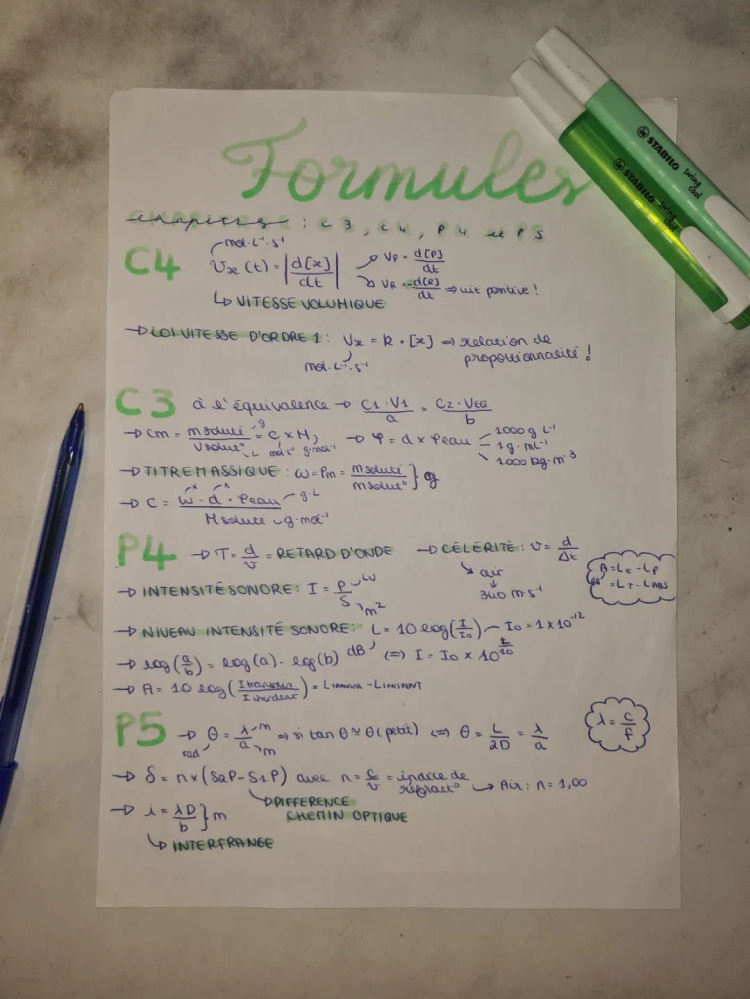 Formules
chapitres : C3, C4, P4 et P5
C4
mol·L⁻¹·s⁻¹
Vx (t) = |d[x]/dt|
Vp = d[P]/dt
VR = -d[R]/dt ⇒ uit positive !
↳ VITESSE VOLUMIQUE
→ LOI VITESSE D'ORDRE 1 : Vx = k • [x] ⇒ relation de proportionnalité !
mol·L⁻¹·s⁻¹
C3 à l'équivalence → C1·V1/a = C2·VEQ/b
→ Cm = msoluté/Vsolut° = C × M, g L mol·L⁻¹ g·mol⁻¹
→ φ = d × φeau 1000 g·L⁻¹
1 g·mL⁻¹
1000 kg·m⁻³
→ TITRE MASSIQUE : ω = Pm = msoluté/msolut° } g
→ C = ω · d · φeau/Msoluté g·L g·mol⁻¹
P4 → T = d/v = RETARD D'ONDE → CÉLÉRITÉ : v = d/Δt
air
↓
340 m·s⁻¹
→ INTENSITÉ SONORE : I = P/S W m²
→ NIVEAU INTENSITÉ SONORE : L = 10 log(I/I0) – I0 = 1 × 10⁻¹²
→ log(a/b) = log(a) - log(b) dB ⇔ I = I0 × 10^(L/10)
→ A = 10 log(Itransmis/Iincident) = Ltransmis - LINCIDENT
dB A = Lc - Lp
= LT - LABS
P5 → θ = λ/a rad m m ⇒ si tan θ ≈ θ (petit) ⇔ θ = L/2D = λ/a
λ = c/f
→ δ = n × (S2P - S1P) avec n = c/v = indice de réfract° → Air : n = 1,00
↳ DIFFERENCE
CHEMIN OPTIQUE
→ i = λD/b } m
↳ INTERFRANGE
STABILO swing cool
STABILO swing cool